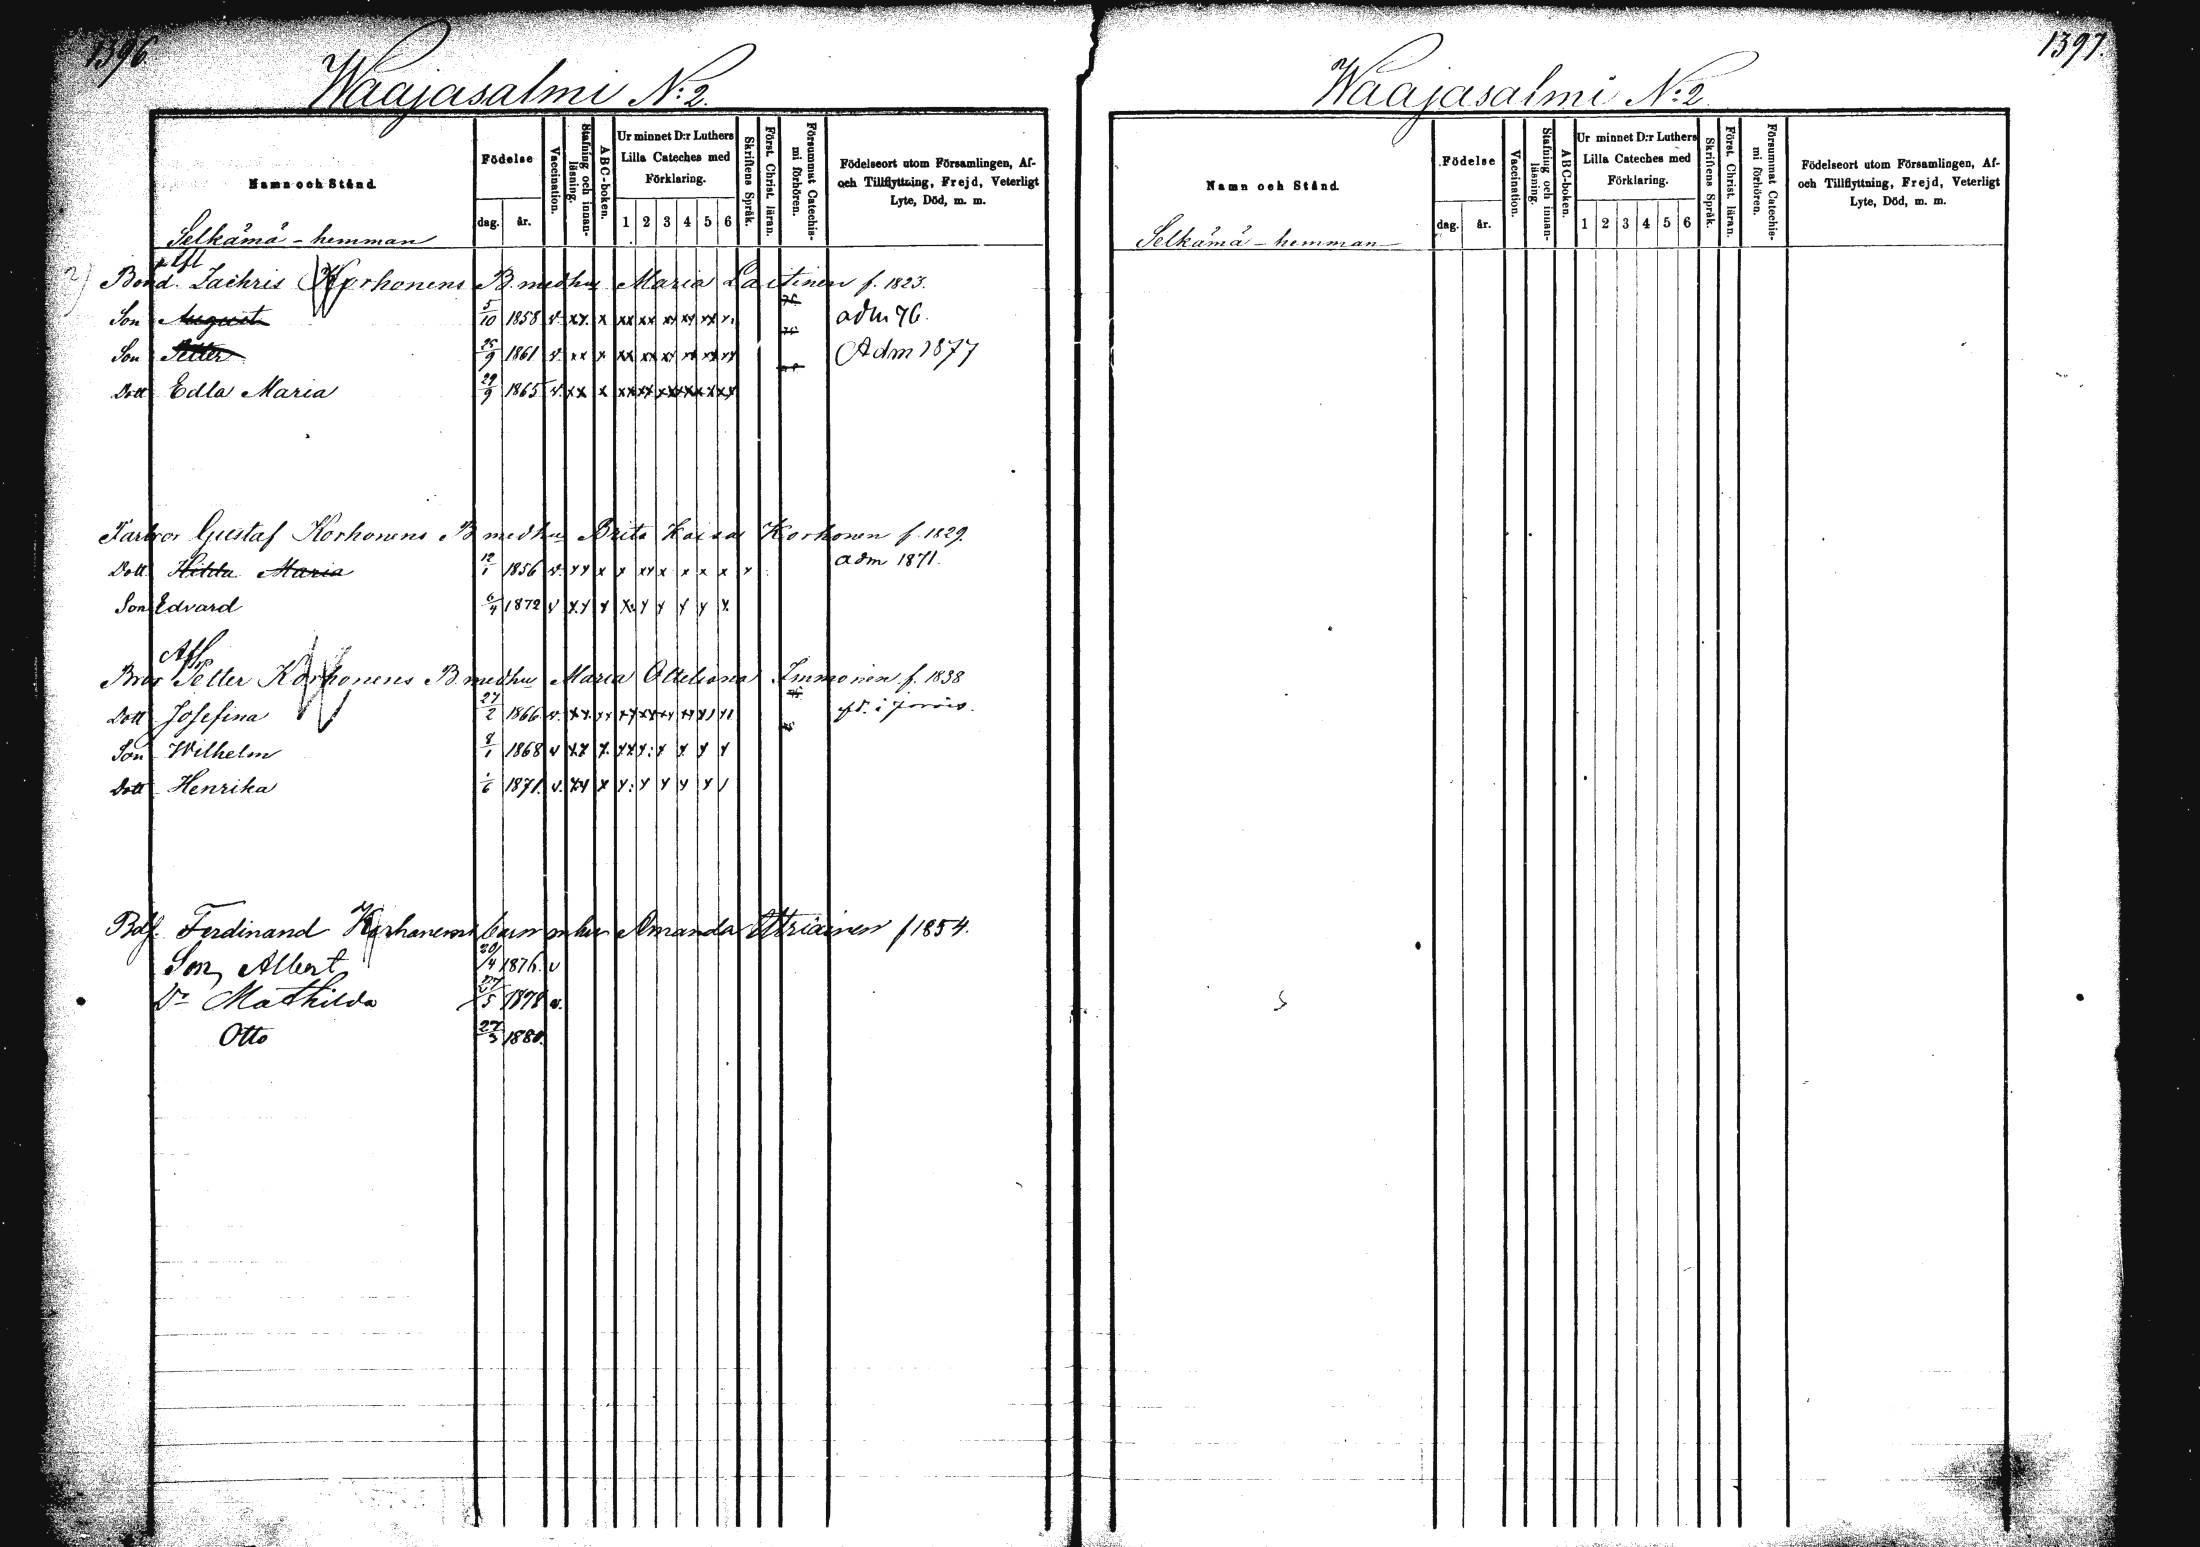 1396.
Waajasalmi N:2.
Namn och Stånd.
Födelse
dag. år.
Vaccination.
Stafning och innan-
läsning.
ABC-boken.
Ur minnet D:r Luthers
Lilla Cateches med
Förklaring.
1 2 3 4 5 6
Skriftens Språk.
Först. Christ. läran.
Försummat Catechis-
mi förhören.
Födelseort utom Församlingen, Af-
och Tillflyttning, Frejd, Veterligt
Lyte, Död, m. m.
Selkämä - hemman
2)
Bond. Zachris Korhonens B. medhu Maria Laitinen f. 1823.
Son August 5/10 1858 v. xx x xx xx xx xx xx adm 76.
Son Petter 25/9 1861 v. xx x xx xx xx xx xx xx Adm 1877
Dott Edla Maria 29/9 1865 v. xx x xx xx xx xx xx xx
Farbror Gustaf Korhonens B medhu Brita Kaisa Korhonen f. 1829.
Dott Hilda Maria 12/1 1856 v. xx x x xx x x x x x adm 1871.
Son Edvard 6/4 1872 v xx x x x x x x x
Afl
Bror Petter Korhonens B. medhu Maria Otteliana Immonen f. 1838
Dott Josefina 27/2 1866 v. xx xx xx xx xx xx fd. i Jorois.
Son Wilhelm 8/1 1868 v xx x xx x x x x x
Dott Henrika 1/6 1871. v. xx x x x x x x
Bdf. Ferdinand Korhonens barn m hu Amanda f 1854.
Son Albert 20/4 1876. v
Dr Mathilda 27/5 1878 v.
Otto 27/3 1880.
1397.
Waajasalmi N:2
Namn och Stånd.
Födelse
dag. år.
Vaccination.
Stafning och innan-
läsning.
ABC-boken.
Ur minnet D:r Luthers
Lilla Cateches med
Förklaring.
1 2 3 4 5 6
Skriftens Språk.
Först. Christ. läran.
Försummat Catechis-
mi förhören.
Födelseort utom Församlingen, Af-
och Tillflyttning, Frejd, Veterligt
Lyte, Död, m. m.
Selkämä - hemman